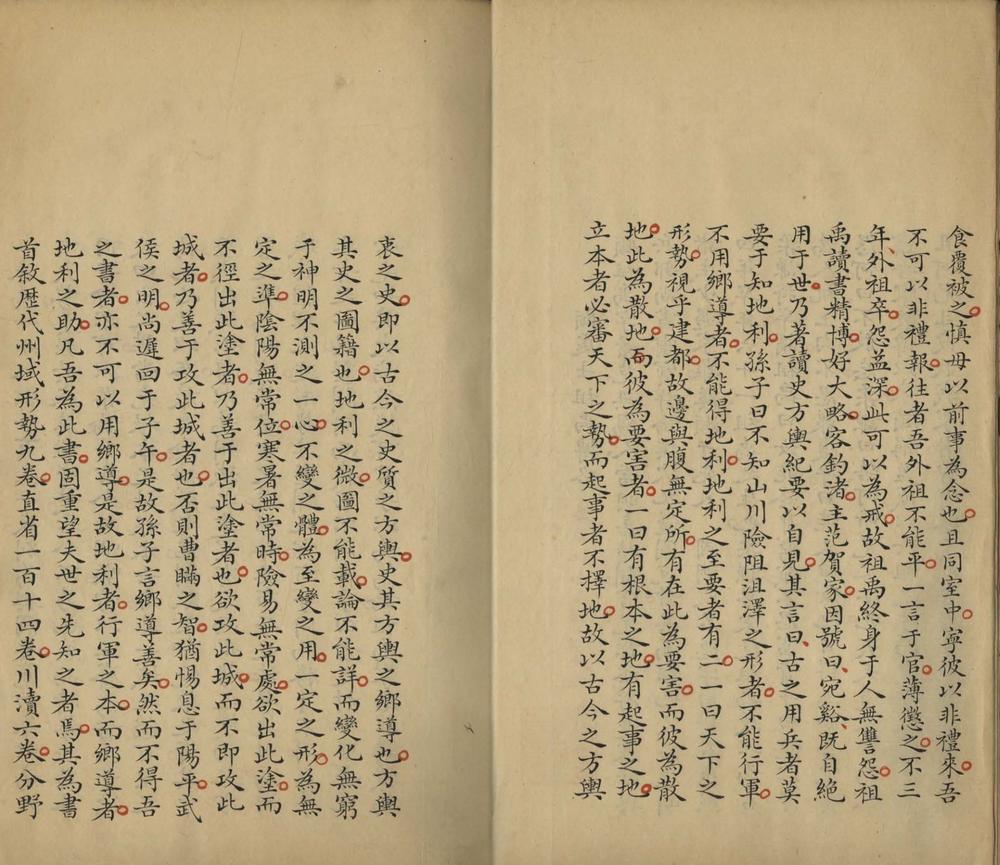 食覆被之慎毋以前事為念也且同室中寧彼以非禮來吾
不可以非禮報往者吾外祖不能平一言于官薄懲之不三
年外祖卒怨益深此可以為戒故祖禹終身于人無讐怨祖
禹讀書精博好大略客釣渚主范賀家因號曰宛谿既自絕
用于世乃著讀史方輿紀要以自見其言曰古之用兵者莫
要于知地利孫子曰不知山川險阻沮澤之形者不能行軍
不用鄉導者不能得地利地利之至要者有二一曰天下之
形勢視乎建都故邊與腹無定所有在此為要害而彼為散
地此為散地而彼為要害者一曰有根本之地有起事之地
立本者必審天下之勢而起事者不擇地故以古今之方輿
衷之史即以古今之史質之方輿史其方輿之鄉導也方輿
其史之圖籍也地利之微圖不能載論不能詳而變化無窮
于神明不測之一心不變之體為至變之用一定之形為無
定之準陰陽無常位寒暑無常時險易無常處欲出此塗而
不徑出此塗者乃善于出此塗者也欲攻此城而不即攻此
城者乃善于攻此城者也否則曹瞞之智猶惕息于陽平武
侯之明尚遲回于子午是故孫子言鄉導善矣然而不得吾
之書者亦不可以用鄉導是故地利者行軍之本而鄉導者
地利之助凡吾為此書固重望夫世之先知之者焉其為書
首敘歴代州域形勢九卷直省一百十四卷川瀆六卷分野